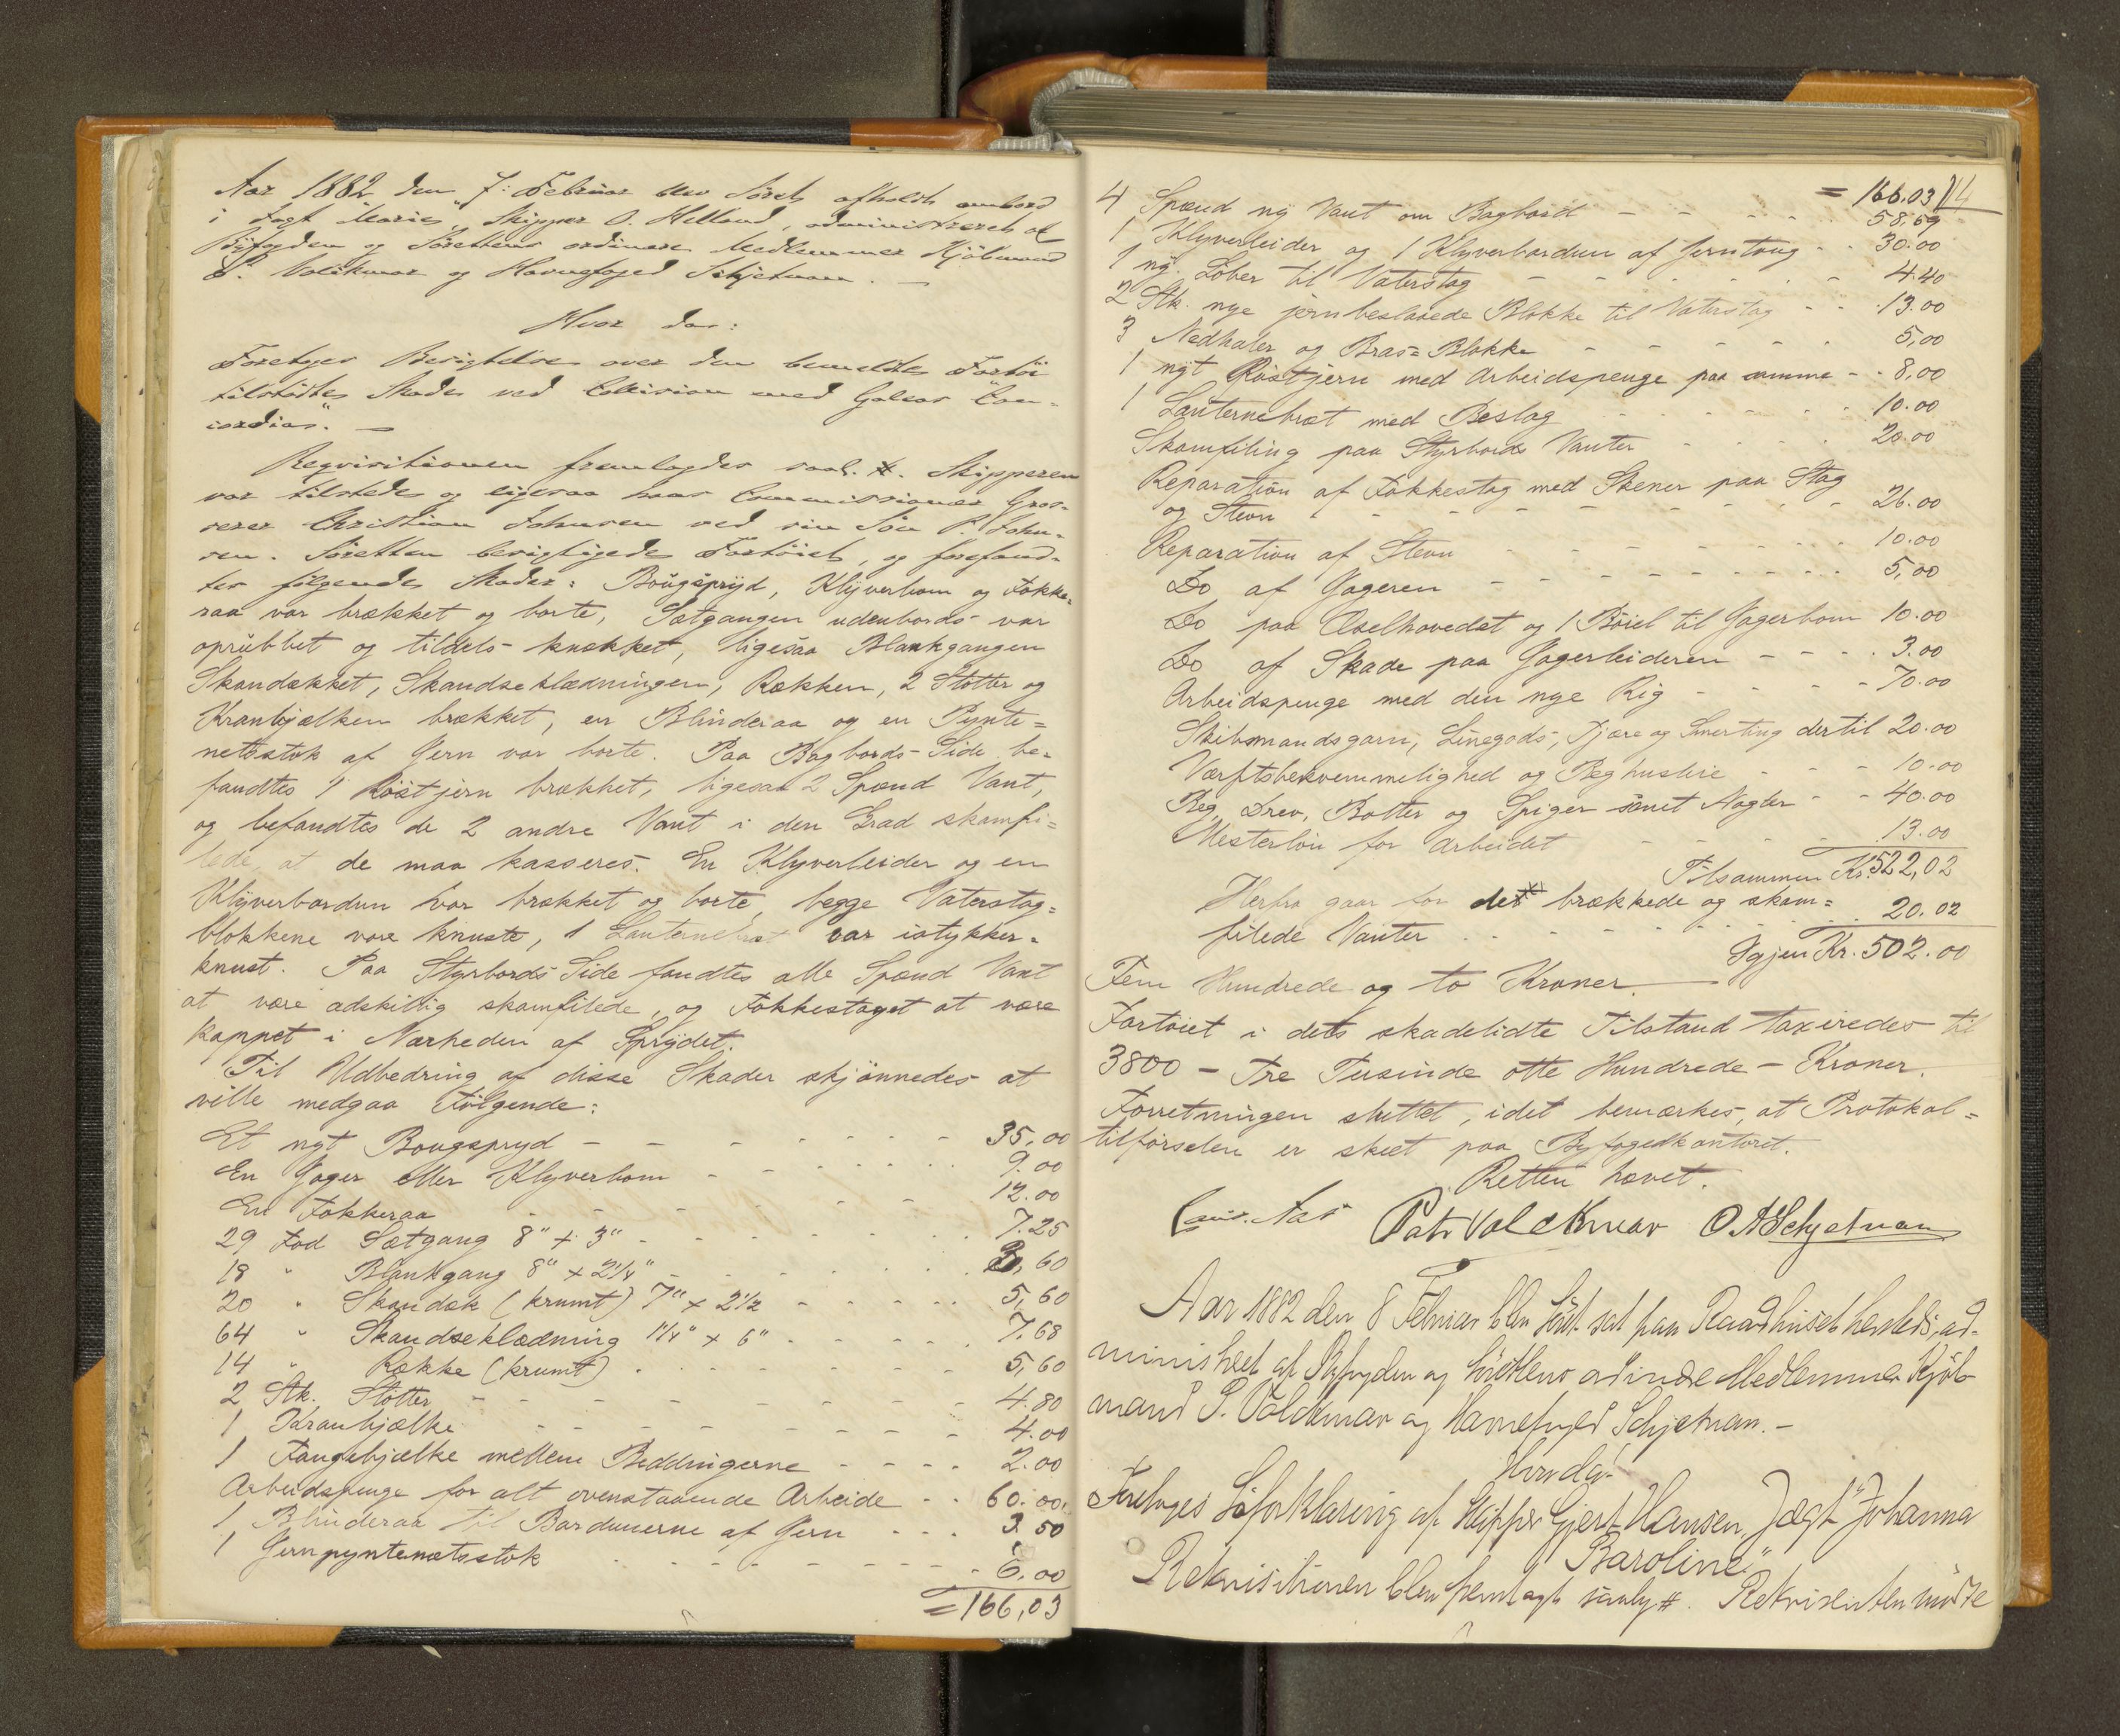 Aar 1882 den 7: Februar blev Söret afholdt ombord
i Jagt "Marie", Skipper O. Helland, administreret af
Byfogden og Sörettens ordinære Medlemmer Kjöbmand
P. Volckmar og Havnefoged Schjetnan. —
Hvor da:
Foretoges Besigtelse over den bemeldte Fartöi
tilstödte Skade ved Collision med Galeas "Con-
cordia". —
Reqvisitionen fremlagdes saal. #. Skipperen
var tilstede og ligesaa hans Commissionær Gros-
serer Christian Johnsen ved sin Sön P. John-
sen. Söretten besigtigede Fartöiet, og forefand-
tes fölgende Skader: Bougspryd, Klyverbom og Fokke-
raa var brækket og borte, Sætgangen udenbords var
oprubbet og tildels knækket, ligesaa Blankgangen
Skandækket, Skandseklædningen, Rækken, 2 Stötter og
Kranbjælken brækket, en Blinderaa og en Pynte=
netsstok af Jern var borte. Paa Bagbords Side be-
fandtes 1 Röstjern brækket, ligesaa 2 Spænd Vant,
og befandtes de 2 andre Vant i den Grad skamfi=
lede, at de maa kasseres. En Klyverleider og en
Klyverbardun var brækket og borte, begge Vaterstag=
blokkene vare knuste, 1 Lanternebræt var istykker-
knust. Paa Styrbords Side fandtes alle Spænd Vant
at være adskillig skamfilede, og Fokkestaget at være
kappet i Nærheden af Sprydet.
Til Udbedring af disse Skader skjönnedes at
ville medgaa Fölgende:
Et nyt Bougspryd - - - - - - 35,00
En Jager eller Klyverbom - - - - - 9.00
En Fokkeraa - - - - - 12.00
29 Fod Sætgang 8" + 3" - - - - - 7.25
18 " Blankgang 8" + 2¼" - - - - - ,60
20 " Skandæk (krumt) 7" + 2½ - - - - - 5,60
64 " Skandseklædning 1¼" + 6" - - - - 7.68
14 " Række (krumt) - - - - - 5,60
2 Stk. Stötter - - - - - - 4.80
1 Kranbjælke - - - - - - 4.00
1 Fangebjælke mellem Beddingerne - - - - 2.00
Arbeidspenge for alt ovenstaaende Arbeide - - 60.00.
1 Blinderaa til Bardunerne af Jern - - - 3.50
1 Jernpyntenætsstok - - - - - - 6,00
= 166,03
= 166.03 14
4 Spænd ny Vant om Bagbord - - - - 58,59
1 Klyverleider og 1 Klyverbardun af Jerntoug - - 30.00
1 ny Löber til Vaterstag - - - - - 4.40
2 Stk. nye jernbeslaaede Blokke til Vaterstag - - 13.00
3 Nedhaler og Bras=Blokke - - - - - 5,00
1 nyt Röstjern med Arbeidspenge paa samme - - 8,00
1 Lanternebræt med Beslag - - - - - 10.00
Skamfiling paa Styrbords Vanter - - - - 20.00
Reparation af Fokkestag med Skener paa Stag
og Stevn - - - - - - - 26.00
Reparation af Stevn - - - - - - 10.00
Do af Jageren - - - - - - 5,00
Do paa Æselhovedet og 1 Böiel til Jagerbom 10.00
Do af Skade paa Jagerleideren - - - - 3.00
Arbeidspenge med den nye Rig - - - - 70.00
Skibsmandsgarn, Linegods, Tjære og Smerting dertil 20.00
Værftsbekvemmelighed og Beghusleie - - - 10.00
Beg, Drev, Bolter og Spiger samt Nagler - - 40.00
Mesterlön for Arbeidet - - - - 13.00
Tilsammen Kr. 522,02
Herfra gaar for det brækkede og skam=
filede Vanter - - - - - - 20.02
Igjen Kr. 502.00
Fem Hundrede og to Kroner. —
Fartöiet i dets skadelidte Tilstand taxeredes til
3800 - Tre Tusinde otte Hundrede - Kroner.
Forretningen sluttet, idet bemærkes, at Protokol=
tilförselen er skeet paa Byfogedkontoret.
Retten hævet.
Patr Volckmar O. A Schjetnan
Aar 1882 den 8 Februar blev Söret sat paa Raadhuset hersteds, ad-
ministreret af Byfogden og Sörettens ordinære Medlemmer Kjöb-
mand P. Volckmar og Havnefoged Schjetnan. -
Hvor da:
Foretoges Söforklaring af Skipper Gjert Hansen, Jagt "Johanna
Baroline".
Rekvisitionen blev fremlagt saaly #. Rekvirenten mödte